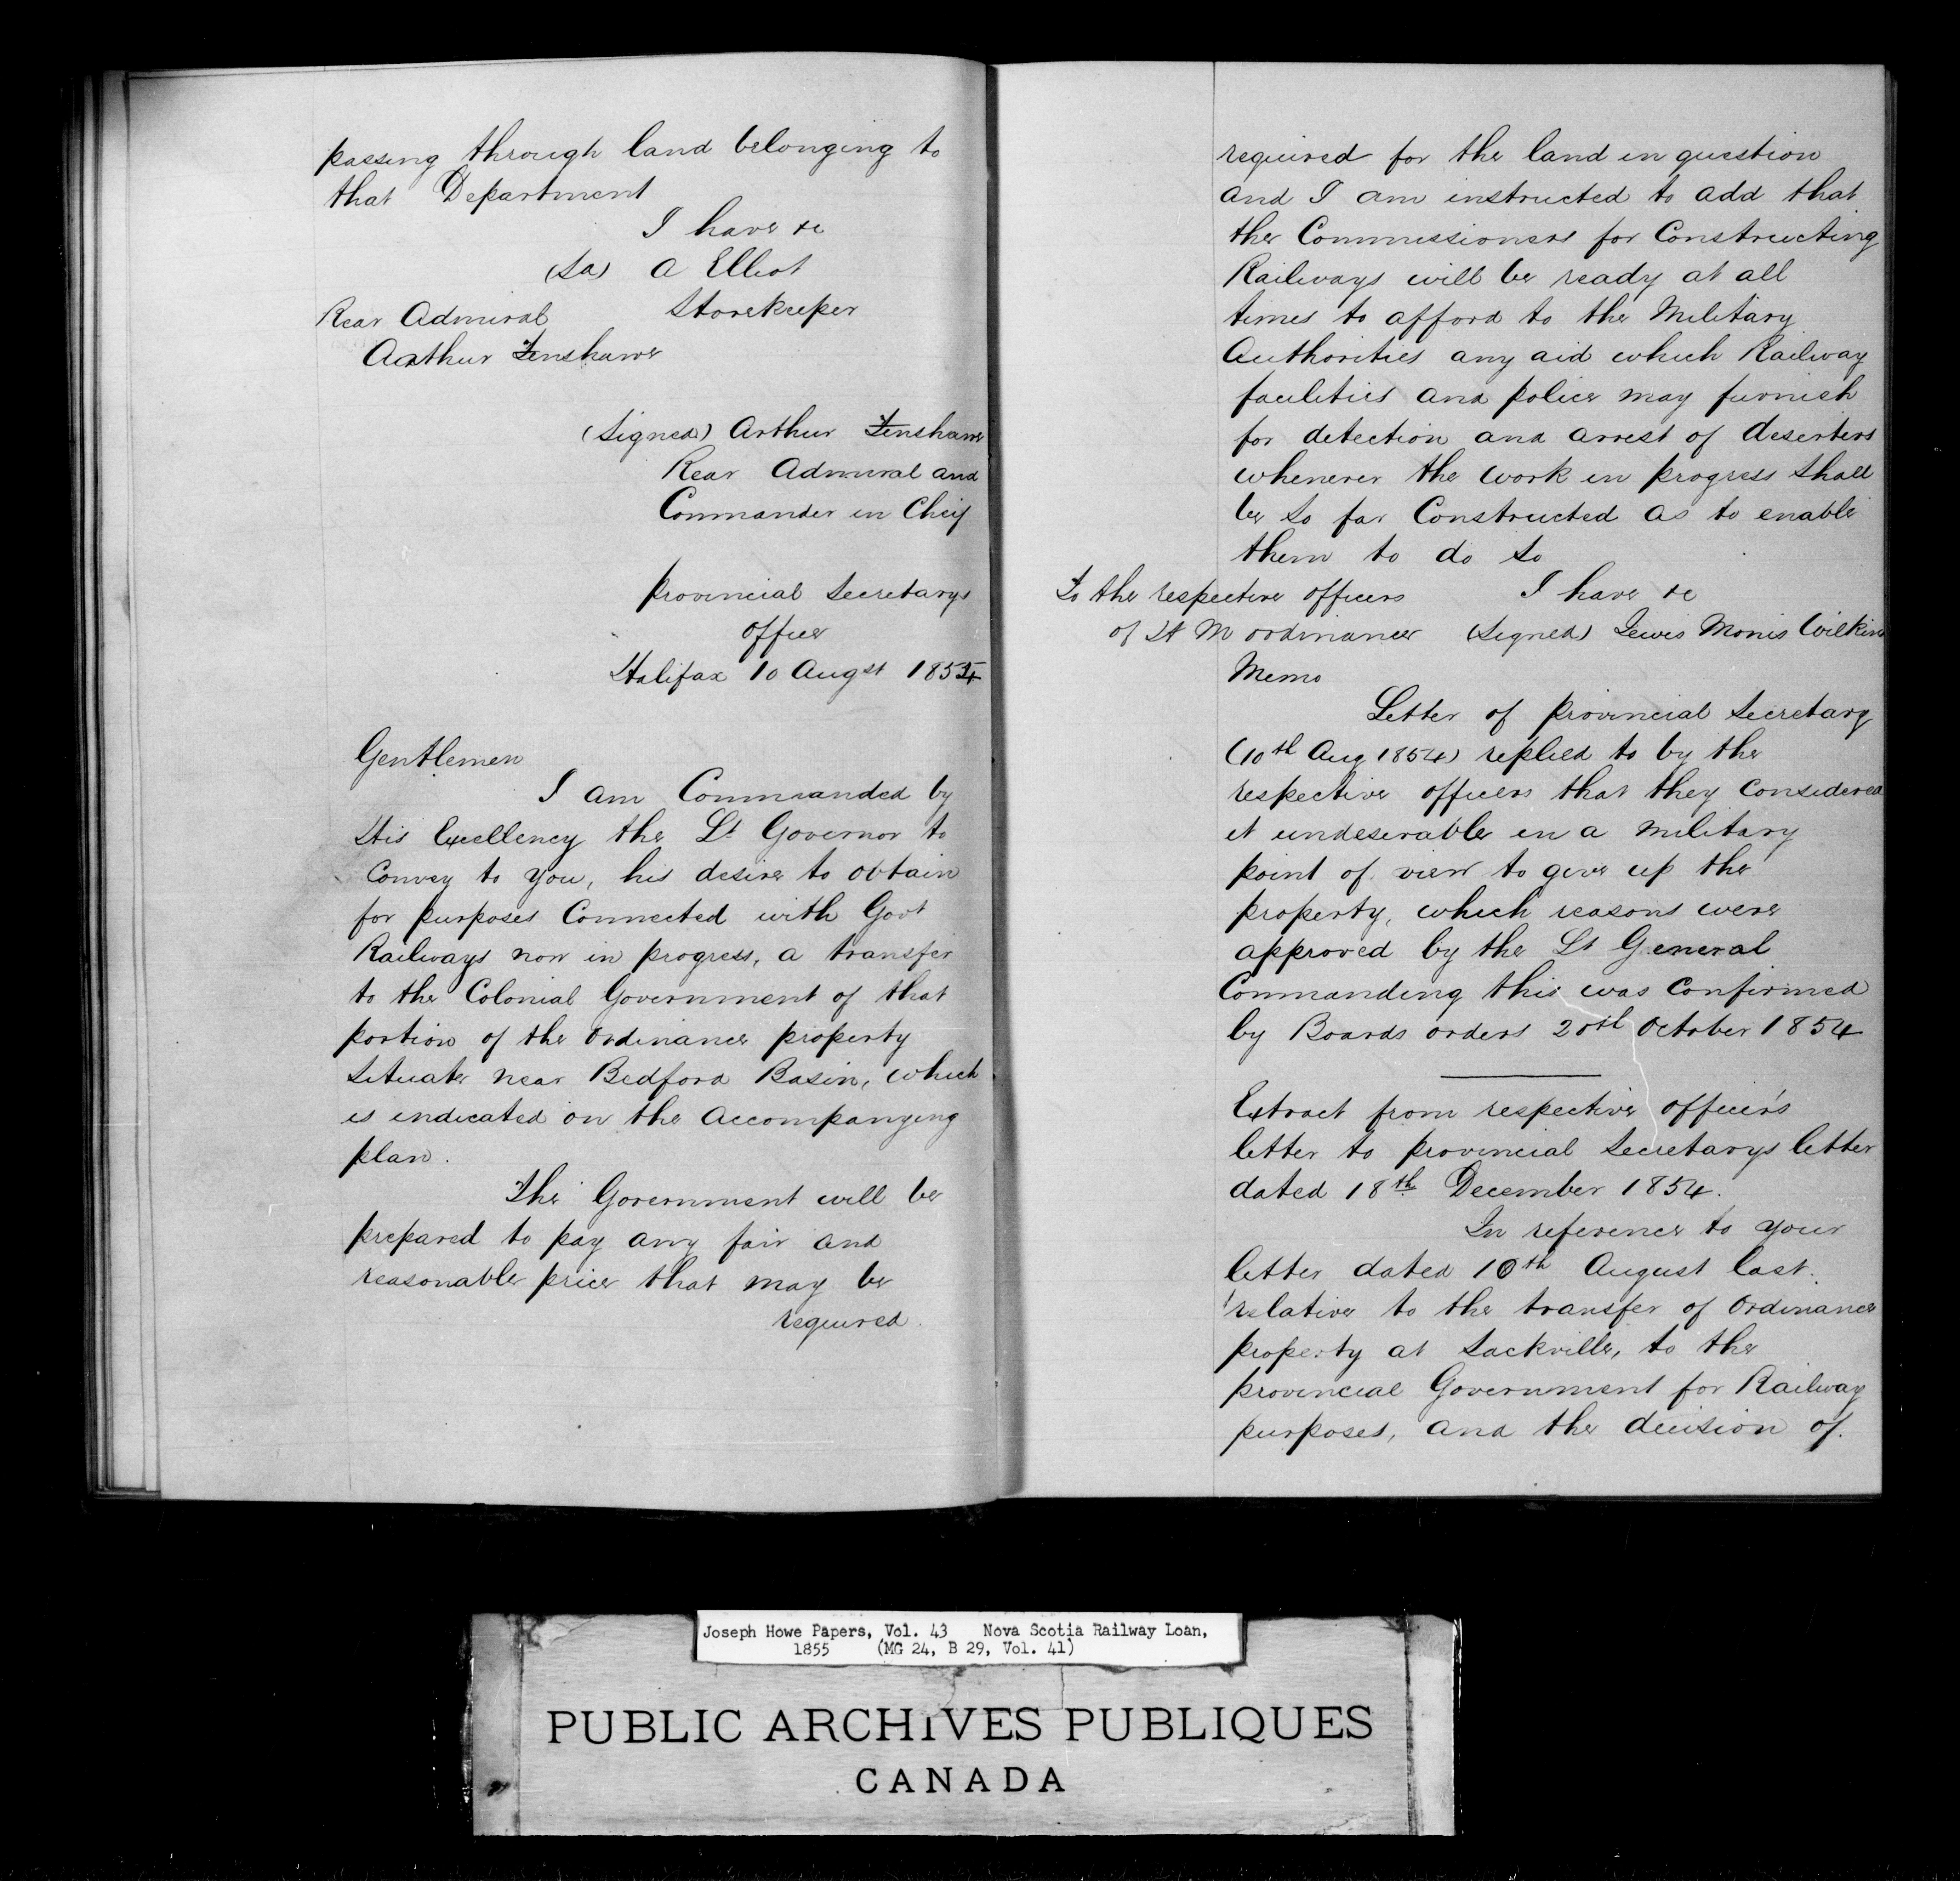 passing through land belonging to
that Department
I have &c
(Sd) A Elliot
Storekeeper
Rear Admiral
Arthur Fenshawe
(Signed) Arthur Fenshawe
Rear Admiral and
Commander in Cheif
Provincial Secretarys
office
Halifax 10 Augst 1854
Gentlemen
I am Commanded by
His Excellency the Lt Governor to
Convey to you, his desire to obtain
for purposes Connected with Govt
Railways now in progress, a transfer
to the Colonial Government of that
portion of the Ordinance property
Situate near Bedford Basin, which
is indicated on the accompanying
plan.
The Government will be
prepared to pay any fair and
reasonable price that may be
required.
required for the land in question
and I am instructed to add that
the Commissioners for Constructing
Railways will be ready at all
times to afford to the Military
Authorities any aid which Railway
facilities and police may furnish
for detection and arrest of deserters
whenever the work in progress shall
be so far Constructed as to enable
them to do so
I have &c
To the respective officers
of H M ordinance (Signed) Lewis Morris Wilkins
Memo
Letter of provincial Secretary
(10th Aug 1854) replied to by the
respective officers that they Considered
it undeserable in a military
point of view to give up the
property, which reasons were
approved by the Lt General
Commanding this was Confirmed
by Boards orders 20th October 1854
Extract from respective officer's
letter to provincial Secretarys letter
dated 18th December 1854.
In reference to your
letter dated 10th August last.
relative to the transfer of Ordinance
property at Sackville, to the
provincial Government for Railway
purposes, and the decision of.
Joseph Howe Papers, Vol. 43 Nova Scotia Railway Loan,
1855 (MG 24, B 29, Vol. 41)
PUBLIC ARCHIVES PUBLIQUES
CANADA